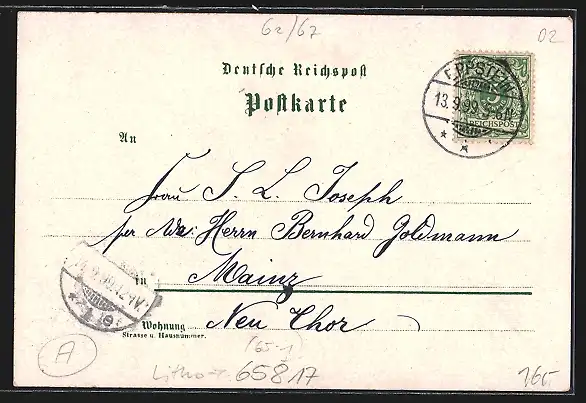 62/67
02
Deutsche Reichspost
Postkarte
EPPSTEIN
13.9.99
REICHSPOST
An
Frau S. L. Joseph
per Adr: Herrn Bernhard Goldmann
in Mainz
Wohnung Neu Thor
Strasse u. Hausnummer.
A
(65-1)
Litho- 65817